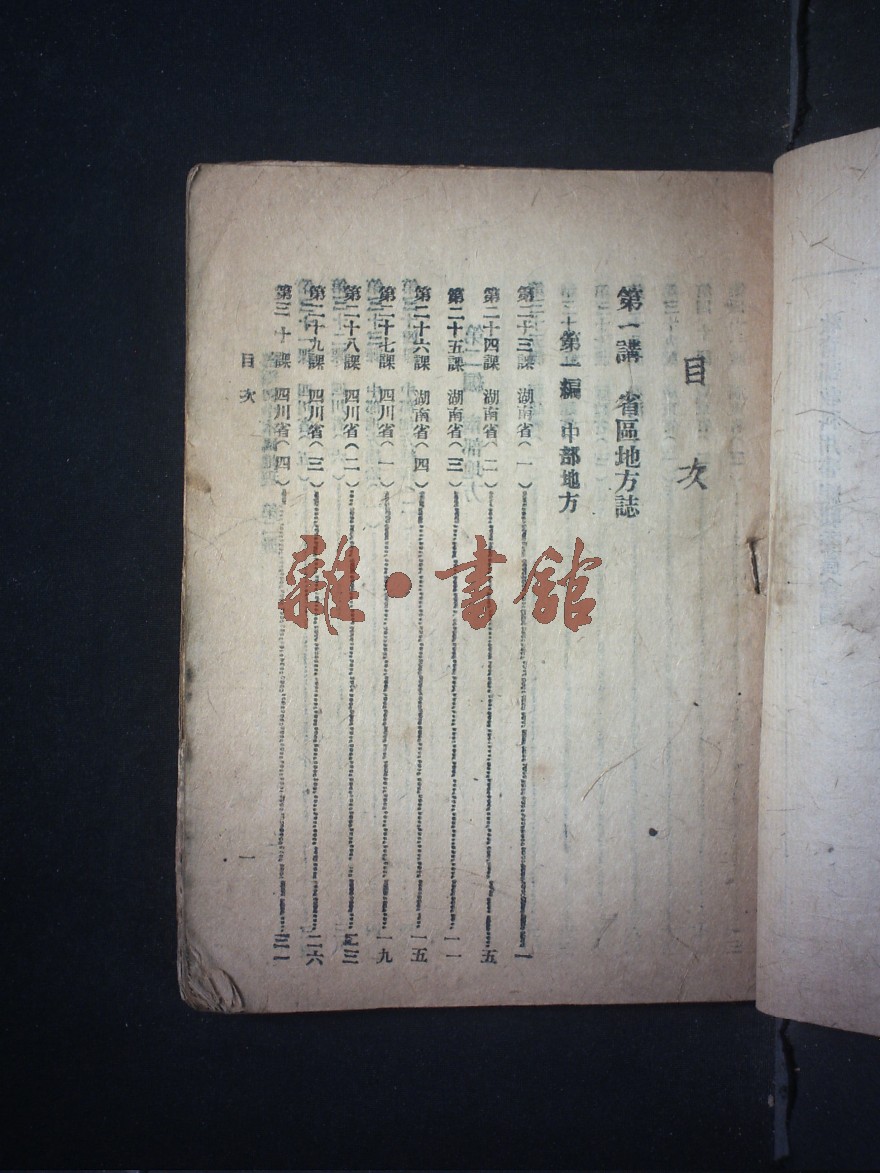 目次
第一講 省區地方誌
第一編 中部地方
第二十三課 湖南省(一)……一
第二十四課 湖南省(二)……五
第二十五課 湖南省(三)……一一
第二十六課 湖南省(四)……一五
第二十七課 四川省(一)……一九
第二十八課 四川省(二)……二三
第二十九課 四川省(三)……二六
第三十課 四川省(四)……三一
目次 一
雜·書館